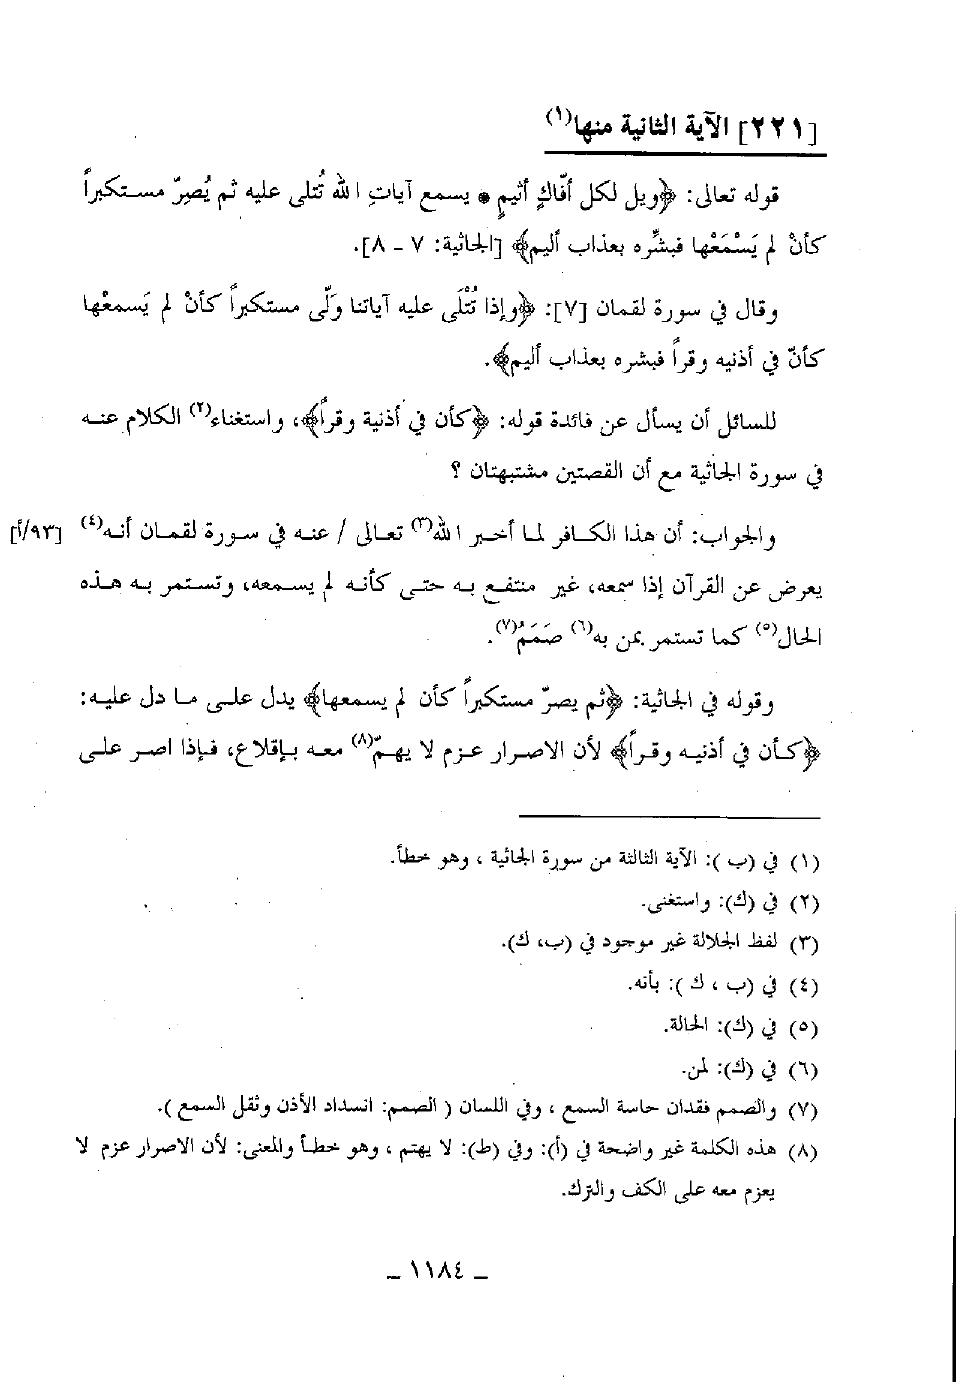 [٢٢١] الآية الثانية منها(١)
قوله تعالى: ﴿ويل لكل أفّاكٍ أثيمٍ * يسمع آياتِ الله تُتلى عليه ثم يُصِرّ مستكبراً
كأنْ لم يَسْمَعْها فبشِّره بعذاب أليم﴾ [الجاثية: ٧ - ٨].
وقال في سورة لقمان [٧]: ﴿وإذا تُتْلَى عليه آياتنا وَلَّى مستكبراً كأنْ لم يَسمعْها
كأنّ في أذنيه وقراً فبشره بعذاب أليم﴾.
للسائل أن يسأل عن فائدة قوله: ﴿كأن في أذنية وقراً﴾، واستغناء(٢) الكلام عنه
في سورة الجاثية مع أن القصتين مشتبهتان ؟
والجواب: أن هذا الكافر لما أخبر الله(٣) تعالى / عنه في سورة لقمان أنه(٤) [٩٣/أ]
يعرض عن القرآن إذا سمعه، غير منتفع به حتى كأنه لم يسمعه، وتستمر به هذه
الحال(٥) كما تستمر بمن به(٦) صَمَمُ(٧).
وقوله في الجاثية: ﴿ثم يصرّ مستكبراً كأن لم يسمعها﴾ يدل على ما دل عليه:
﴿كأن في أذنيه وقراً﴾ لأن الاصرار عزم لا يهمّ(٨) معه بإقلاع، فإذا اصر على
(١) في (ب ): الآية الثالثة من سورة الجاثية ، وهو خطأ.
(٢) في (ك): واستغنى.
(٣) لفظ الجلالة غير موجود في (ب، ك).
(٤) في (ب ، ك ): بأنه.
(٥) في (ك): الحالة.
(٦) في (ك): لمن.
(٧) والصمم فقدان حاسة السمع ، وفي اللسان ( الصمم: انسداد الأذن وثقل السمع ).
(٨) هذه الكلمة غير واضحة في (أ): وفي (ط): لا يهتم ، وهو خطأ والمعنى: لأن الاصرار عزم لا
يعزم معه على الكف والترك.
- ١١٨٤ -